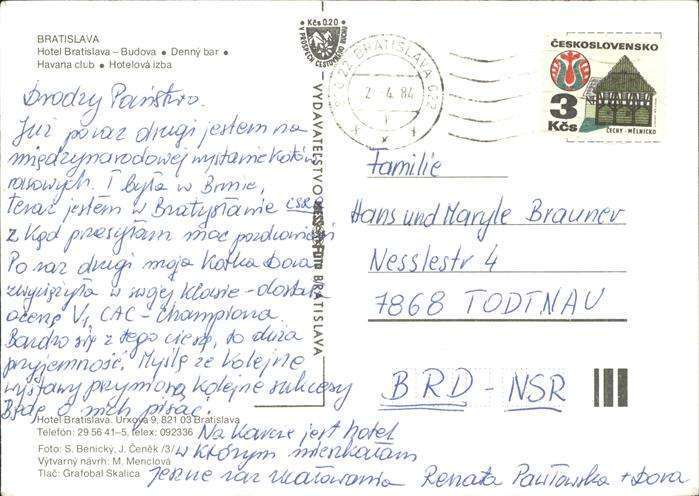 BRATISLAVA
Hotel Bratislava – Budova • Denný bar •
Havana club • Hotelová izba
Kčs 0.20
V PROSPECH CESTOVNÉHO RUCHU
BRATISLAVA
2. 4. 84
ČESKOSLOVENSKO
3
Kčs
ČECHY - MĚLNICKO
Drodzy Państwo.
Już po raz drugi jestem na
międzynarodowej wystawie kotów
rasowych. I była w Brnie,
teraz jestem w Bratysławie CSRS
z kąd przesyłam moc pozdrowień
Po raz drugi moja kotka Dora
zwyciężyła w swojej klasie - dostała
ocenę V1 CAC - Championa.
Bardzo się z tego cieszę, to duża
przyjemność. Myślę że kolejne
wystawy przyniosą kolejne sukcesy
Będę o nich pisać.
Na kartce jest hotel
w którym mieszkałam
Jeszcze raz ucałowania Renata Pawłowska + Dora
VYDAVATEĽSTVO
BRATISLAVA
Familie
Hans und Maryle Brauner
Nesslestr 4
7868 TODTNAU
BRD - NSR
Hotel Bratislava. Urxova 9, 821 03 Bratislava
Telefón: 29 56 41–5, telex: 092336
Foto: S. Benický, J. Čeněk /3/
Výtvarný návrh: M. Menclová
Tlač: Grafobal Skalica